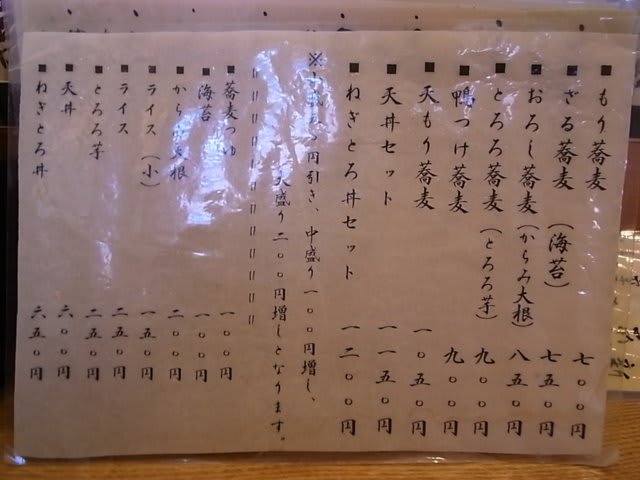 ■もり蕎麦 七〇〇円
■ざる蕎麦(海苔) 七五〇円
■おろし蕎麦(からみ大根) 八五〇円
■とろろ蕎麦(とろろ芋) 九〇〇円
■鴨つけ蕎麦 九〇〇円
■天もり蕎麦 一〇五〇円
■天丼セット 一一五〇円
■ねぎとろ丼セット 一二〇〇円
※ 円引き、中盛り一〇〇円増し、
大盛り二〇〇円増しとなります。
■蕎麦つゆ 一〇〇円
■海苔 一〇〇円
■から 大根 二〇〇円
■ライス(小) 一五〇円
■ライス 二五〇円
■とろろ芋 二五〇円
■天丼 六〇〇円
■ねぎとろ丼 六五〇円